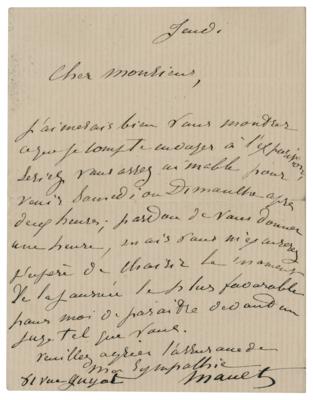 Jeudi.
Cher Monsieur,
j'aimerais bien vous montrer
ce que je compte envoyer à l'exposition,
seriez vous assez aimable pour
venir Samedi ou Dimanche après
deux heures, pardon de vous donner
une heure, mais vous
de choisir le moment
de la journée le plus favorable
pour moi de paraître devant un
juge tel que vous.
veuillez agréer l'assurance de
ma sympathie
61 rue Guyot Manet